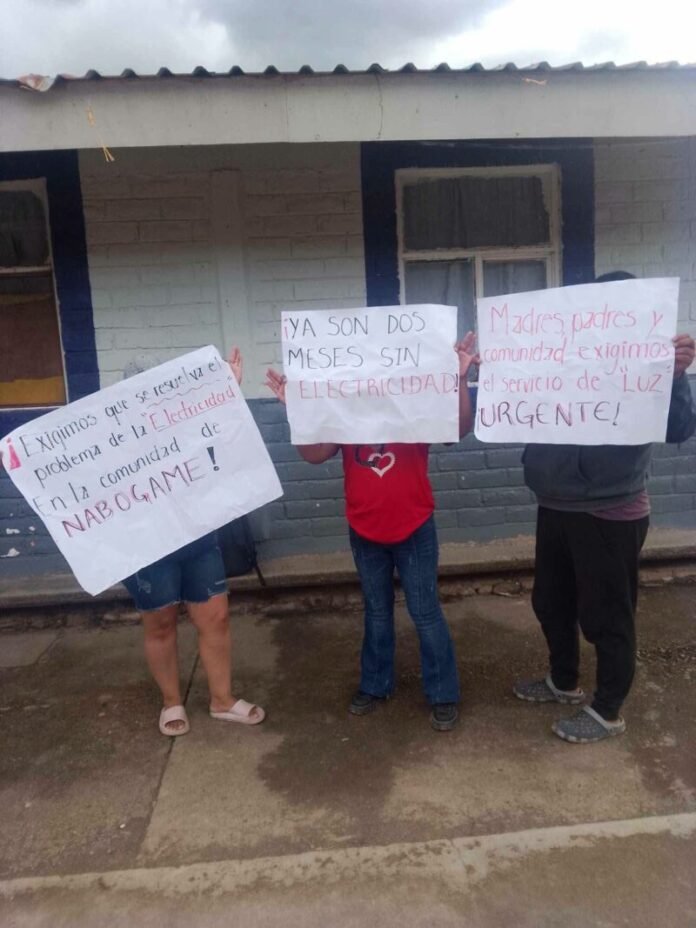 ¡Exigimos que se resuelva el
problema de la "Electricidad"
En la comunidad de
NABOGAME!
¡YA SON DOS
MESES SIN
ELECTRICIDAD!
Madres, padres y
comunidad exigimos
el servicio de "LUZ"
¡URGENTE!